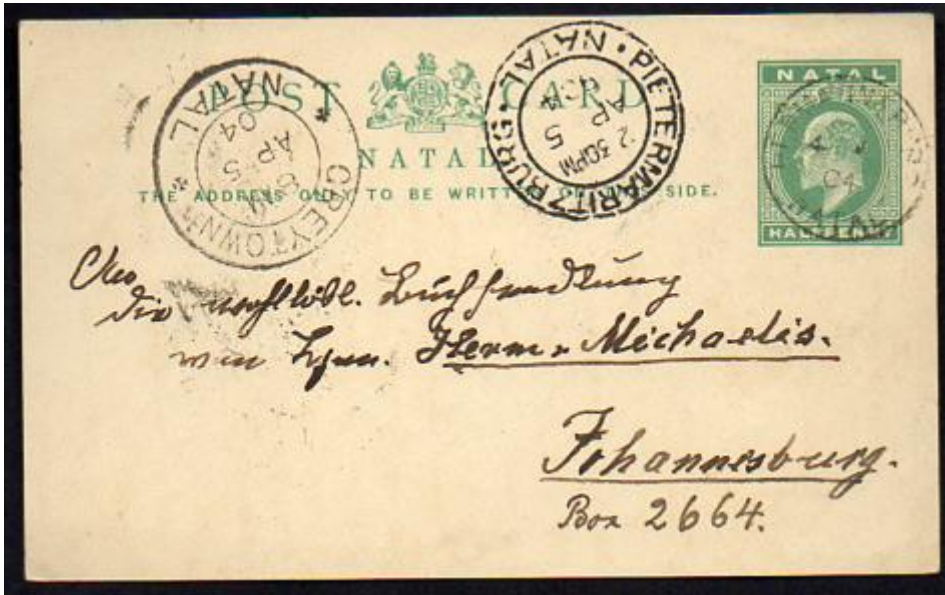 POST CARD
NATAL
THE ADDRESS ONLY TO BE WRITTEN SIDE.
NATAL
HALFPENNY
GREYTOWN NATAL
AP 5
04
PIETERMARITZBURG · NATAL
2 30PM
5
AP
04
NATAL
04
An
die wohllöbl. Buchhandlung
von Hrn. Herm. Michaelis.
Johannesburg.
Box 2664.